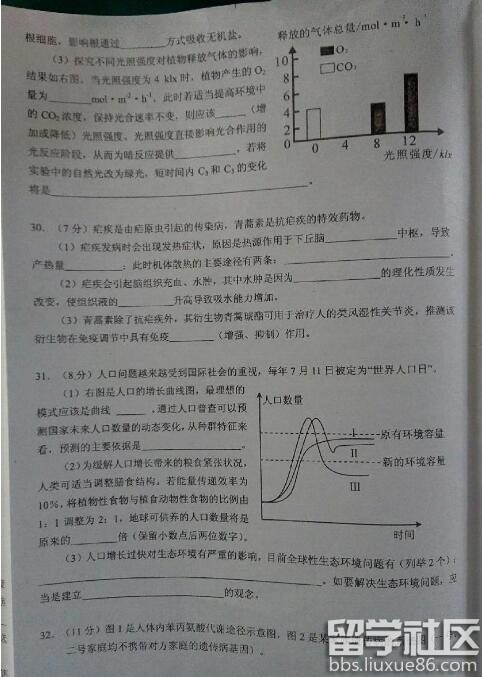 根细胞，影响根通过________方式吸收无机盐。
（3）探究不同光照强度对植物释放气体的影响，
结果如右图。当光照强度为 4 klx 时，植物产生的 O₂
量为________mol·m⁻²·h⁻¹，此时若适当提高环境中
的 CO₂ 浓度，保持光合速率不变，则应该______（增
加或降低）光照强度。光照强度直接影响光合作用的
光反应阶段，从而为暗反应提供__________。若将
实验中的自然光改为绿光，短时间内 C₃ 和 C₅ 的变化
将是________________________________。
释放的气体总量/mol·m⁻²·h⁻¹
O₂
CO₂
10
8
6
4
2
0 4 8 12
光照强度/klx
30.（7 分）疟疾是由疟原虫引起的传染病，青蒿素是抗疟疾的特效药物。
（1）疟疾发病时会出现发热症状，原因是热源作用于下丘脑____________中枢，导致
产热量__________；此时机体散热的主要途径有两条：________________________。
（2）疟疾会引起脑组织充血、水肿，其中水肿是因为____________的理化性质发生
改变，使组织液的____________升高导致吸水能力增加。
（3）青蒿素除了抗疟疾外，其衍生物青蒿琥酯可用于治疗人的类风湿性关节炎，推测该
衍生物在免疫调节中具有免疫__________（增强、抑制）作用。
31.（8 分）人口问题越来越受到国际社会的重视，每年 7 月 11 日被定为“世界人口日”。
（1）右图是人口的增长曲线图，最理想的
模式应该是曲线 ______ ，通过人口普查可以预
测国家未来人口数量的动态变化，从种群特征来
看，预测的主要依据是______________。
（2）为缓解人口增长带来的粮食紧张状况，
人类可适当调整膳食结构。若能量传递效率为
10%，将植物性食物与植食动物性食物的比例由
1：1 调整为 2：1，地球可供养的人口数量将是
原来的__________倍（保留小数点后两位数字）。
人口数量
I
II
III
原有环境容量
新的环境容量
时间
（3）人口增长过快对生态环境有严重的影响，目前全球性生态环境问题有（列举 2 个）：
________________________________________。如要解决生态环境问题，应
当是建立____________________的观念。
32.（11 分）图 1 是人体内苯丙氨酸代谢途径示意图，图 2 是某
二号家庭均不携带对方家庭的遗传病基因）。
留学社区
bbs.liuxue86.com